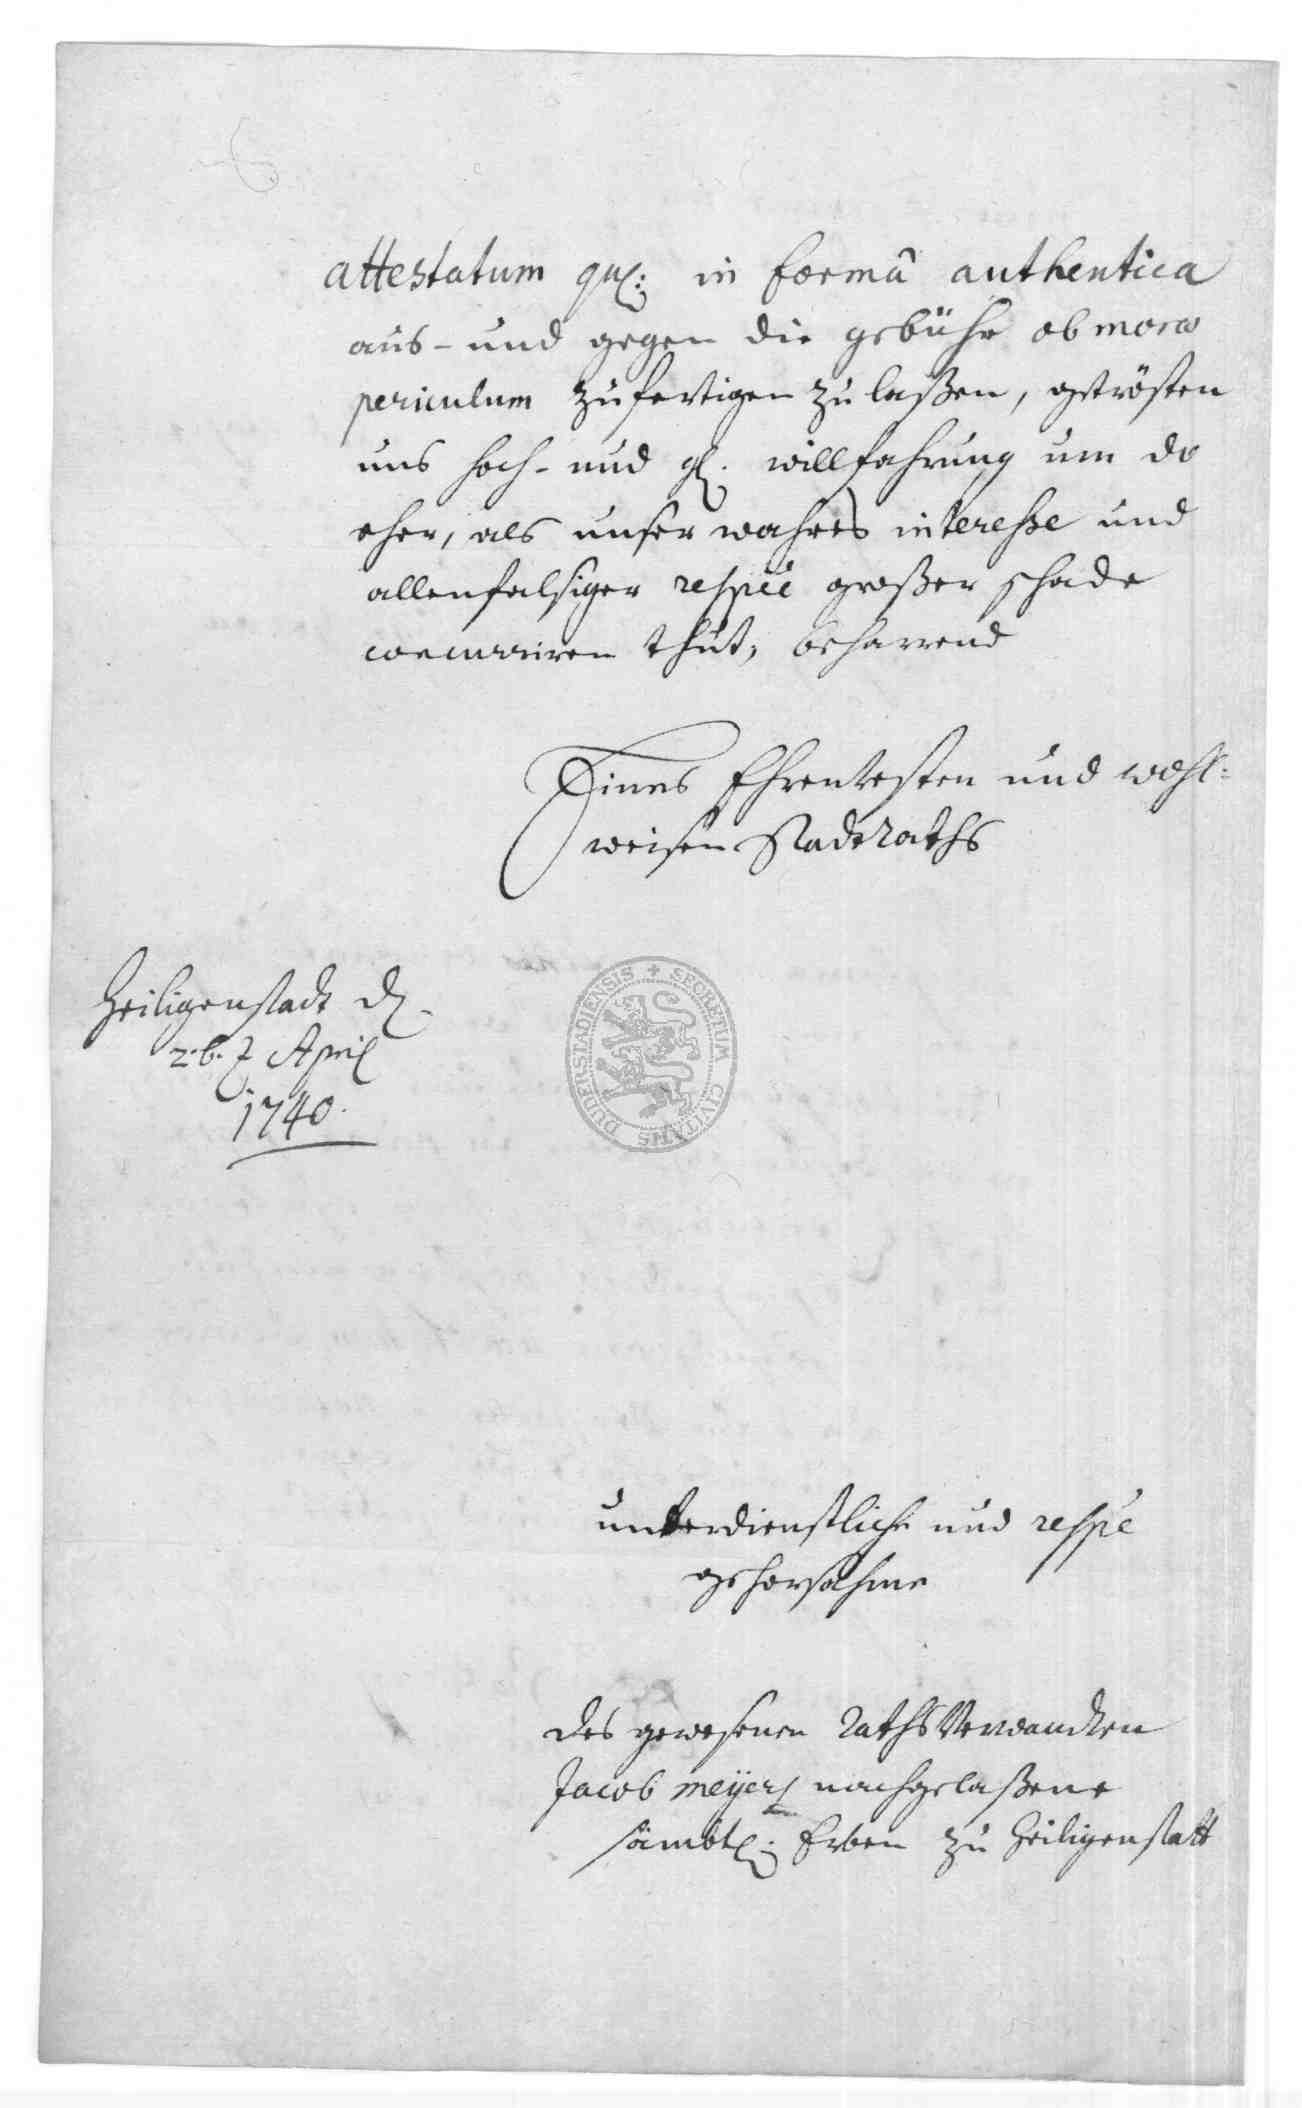 attestatum qu: in formâ authentica
aus- und gegen die gebühr ob moræ
periculum zufertigen zu laßen, getrösten
uns hoch- und gl. willfahrung um do
eher, als unser wahres interesse und
allenfalsiger respée großer schade
concurriren thut, beharrend
Eines Ehrenvesten und wohl:
weisen StadtRaths
Heiligenstadt d
26t April
1740.
DUDERSTADIENSIS + SECRETUM CIVITATIS
unterdienstliche und respe
gehorsahme
des gewesenen RathsVerwandten
Jacob meÿers nachgelaßene
sämbtl: Erben zu Heiligenstatt